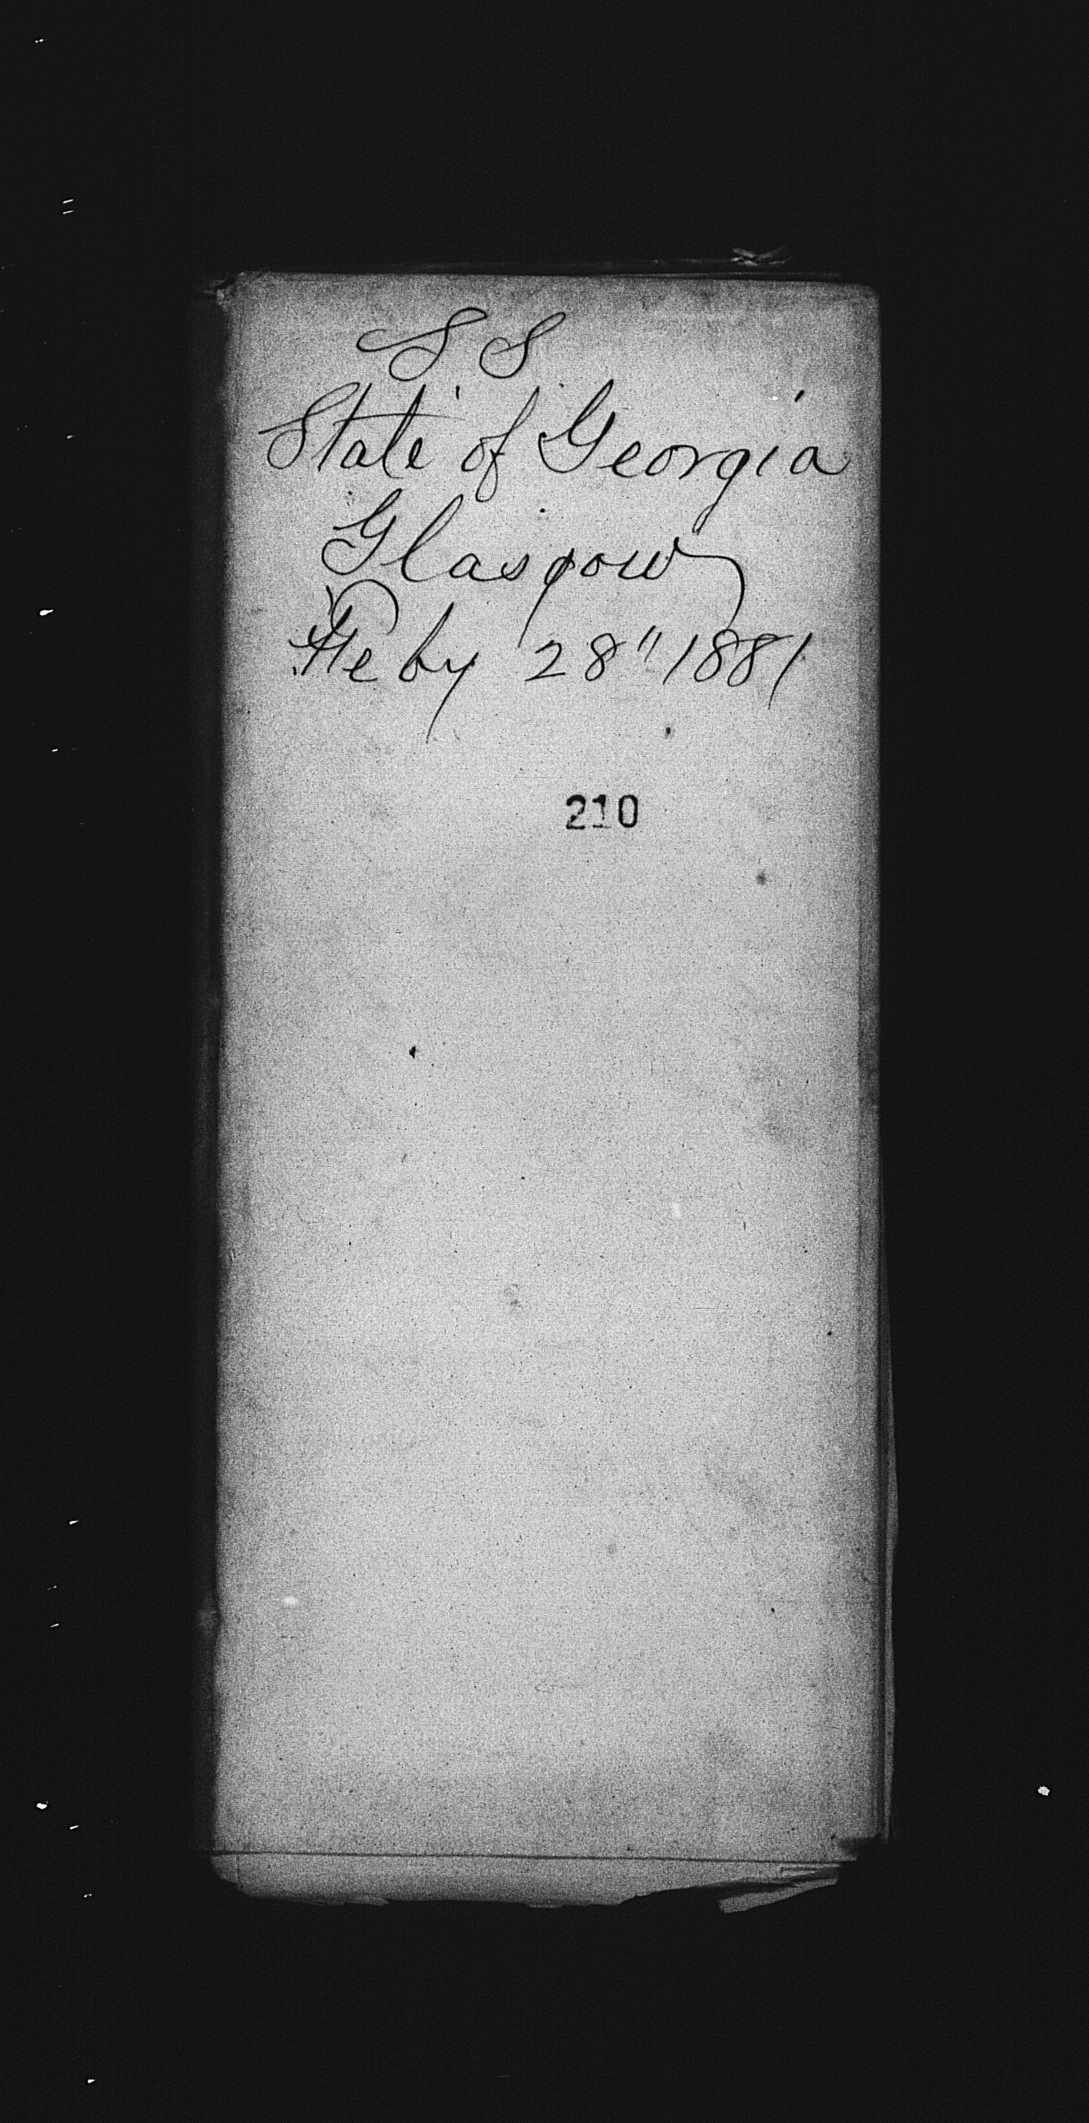 S S
State of Georgia
Glasgow
Feby 28" 1881
210